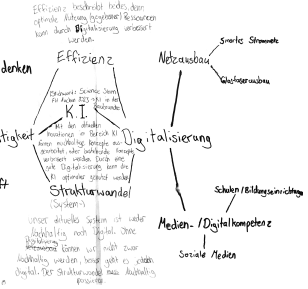 Effizienz beschreibt beides, denn
optimale Nutzung gegebener Ressourcen
kann durch Digitalisierung verbessert
werden.
Effizienz
Netzausbau
smarte Stromnetze
Glasfaserausbau
denken
K.I.
Mit den aktuellen
Innovationen im Bereich KI
können nachhaltig Konzepte aus-
gearbeitet, oder bestehende Konzepte
verbessert werden. Durch eine
gute Digitalisierung kann die
KI optimaler genutzt werden
tigkeit
Digitalisierung
ft
Strukturwandel
(System-)
Schulen/Bildungseinrichtungen
Medien-/Digitalkompetenz
Soziale Medien
unser aktuelles System ist weder
Nachhaltig noch Digital. Ohne
Digitalisierung
können wir nicht zwar
Nachhaltig werden, besser geht es
digital. Der Strukturwandel muss Nachhaltig
passieren.